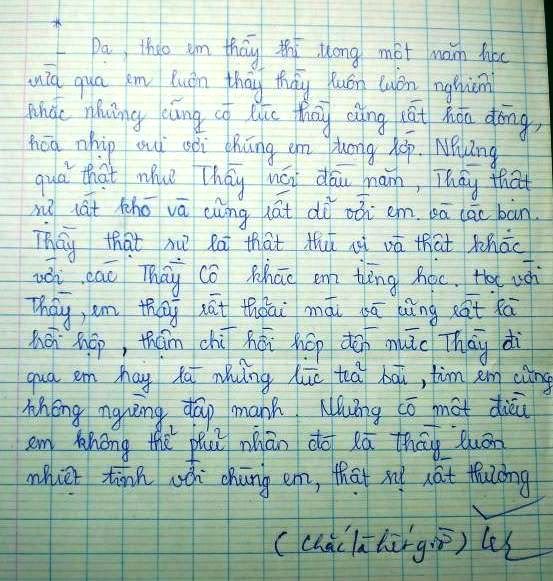 *
- Dạ, theo em thấy thì trong một năm học
vừa qua em luôn thấy thầy luôn luôn nghiêm
khắc nhưng cũng có lúc thầy cũng rất hòa đồng,
hòa nhịp vui với chúng em trong lớp. Nhưng
quả thật như Thầy nói đầu năm, Thầy thật
sự rất khó và cũng rất dễ với em và các bạn.
Thầy thật sự là thật thú vị và thật khác
với các Thầy Cô khác em từng học. Học với
Thầy, em thấy rất thoải mái và cũng rất là
hồi hộp, thậm chí hồi hộp đến nước Thầy đi
qua em hay là những lúc trả bài, tim em cũng
không ngừng đập mạnh. Nhưng có một điều
em không thể phủ nhận đó là Thầy luôn
nhiệt tình với chúng em, thật sự rất thương
(Chắc là hết giờ)